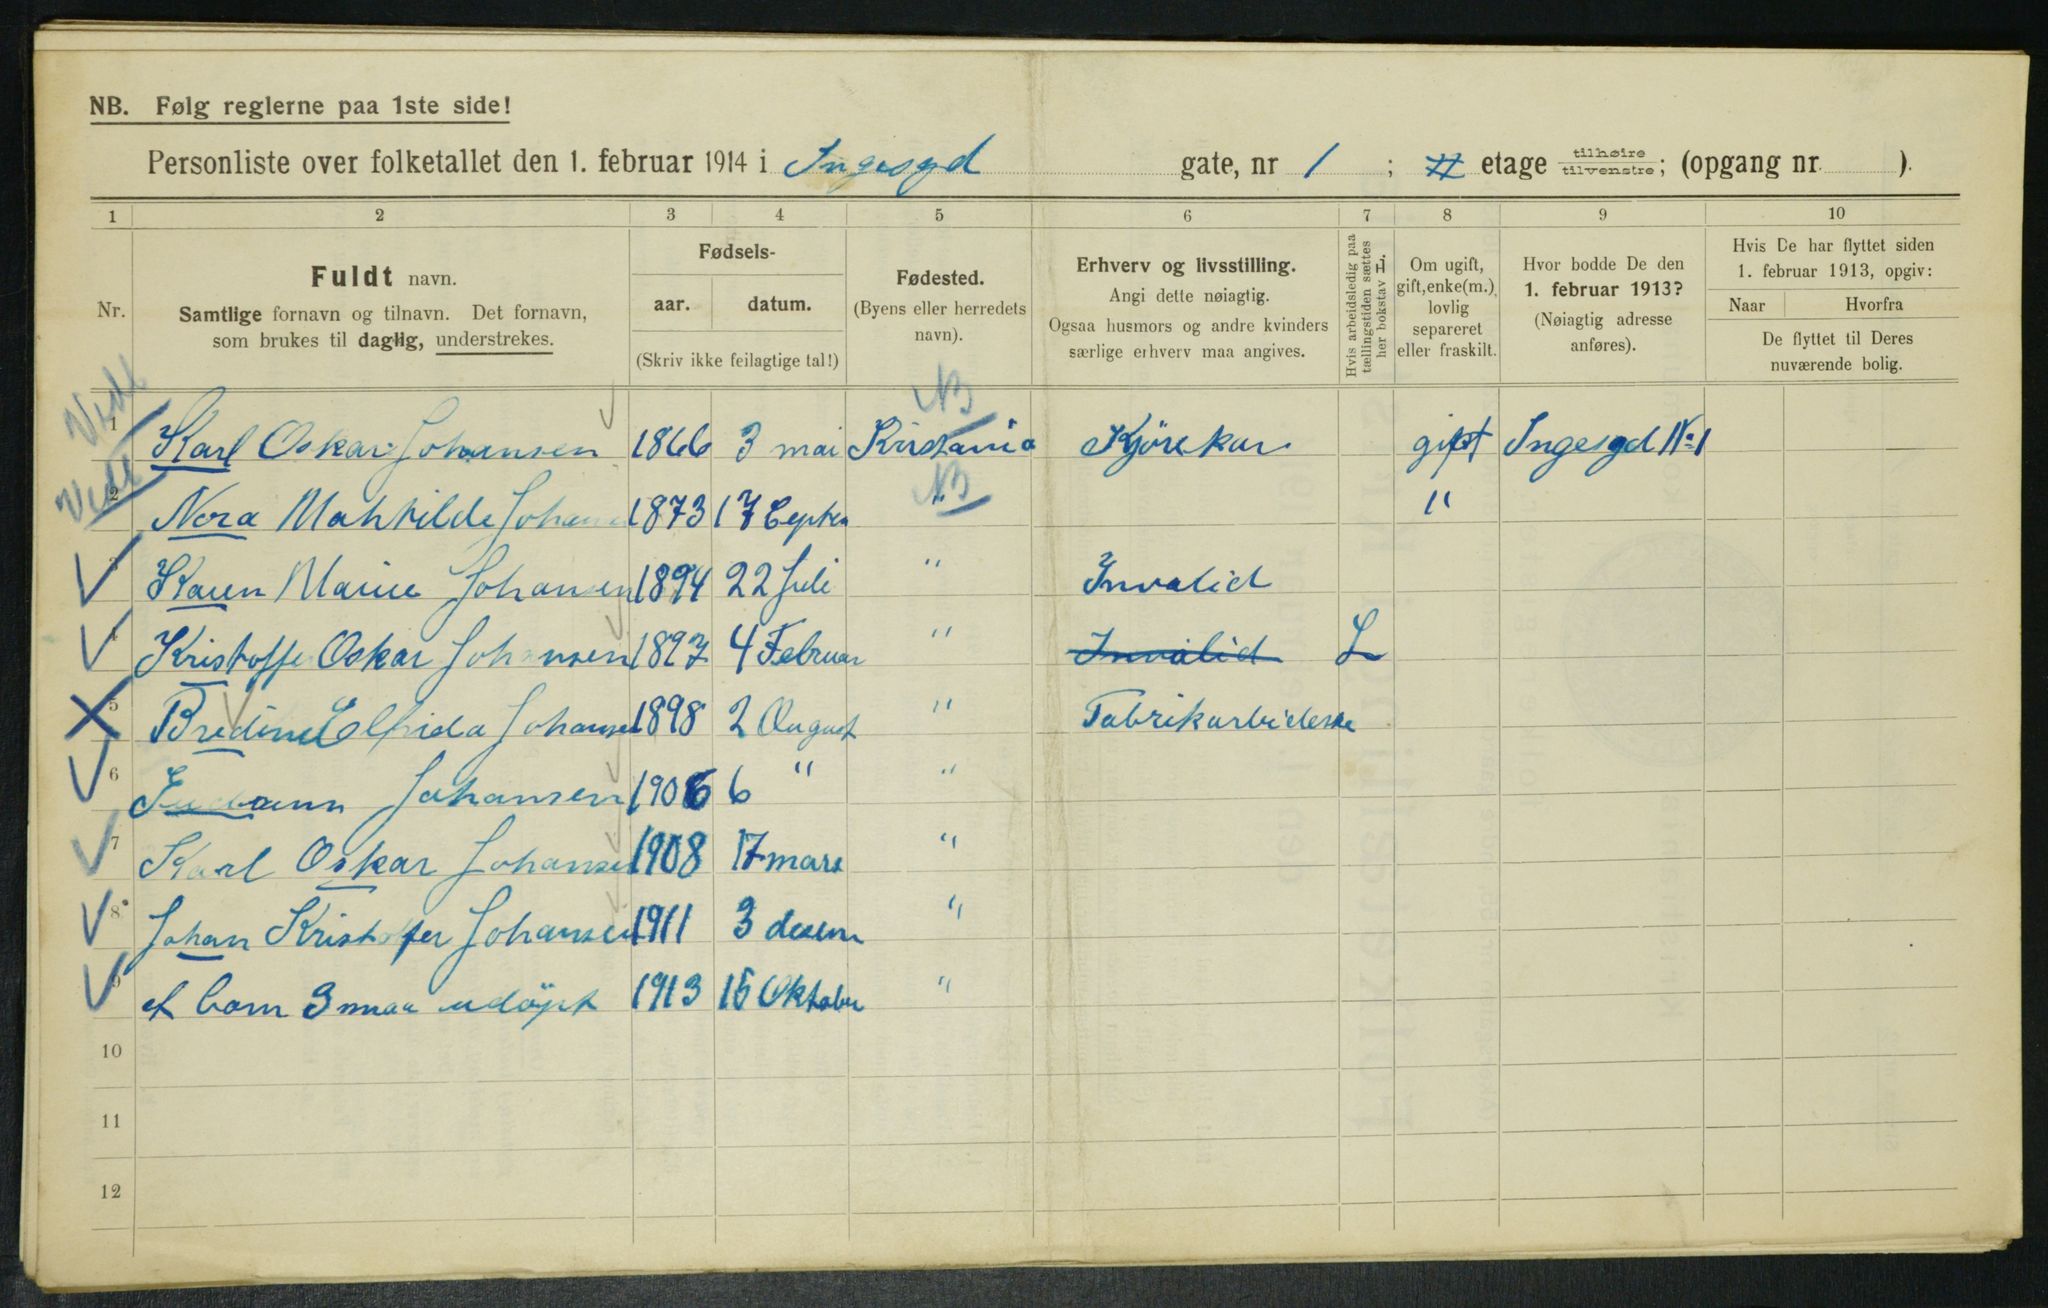 NB. Følg reglerne paa 1ste side!
Personliste over folketallet den 1. februar 1914 i Ingesgd gate, nr 1 ; II etage tilhøire tilvenstre; (opgang nr. ).
1 2 3 4 5 6 7 8 9 10
Nr.
Fuldt navn.
Samtlige fornavn og tilnavn. Det fornavn,
som brukes til daglig, understrekes.
Fødsels-
aar. datum.
(Skriv ikke feilagtige tal!)
Fødested.
(Byens eller herredets
navn).
Erhverv og livsstilling.
Angi dette nøiagtig.
Ogsaa husmors og andre kvinders
særlige erhverv maa angives.
Hvis arbeidsledig paa
tællingstiden sættes
her bokstav L.
Om ugift,
gift, enke(m.),
lovlig
separeret
eller fraskilt.
Hvor bodde De den
1. februar 1913?
(Nøiagtig adresse
anføres).
Hvis De har flyttet siden
1. februar 1913, opgiv:
Naar Hvorfra
De flyttet til Deres
nuværende bolig.
NB
1 Karl Oskar Johansen 1866 3 mai Kristania Kjörekar gift Ingesgd No 1
NB
2 Nora Mahtilde Johansen 1873 17 Septem " "
3 Karen Marie Johansen 1894 22 Juli " Invalid
4 Kristoffer Oskar Johansen 1897 4 Februar " Invalid L
5 Bredine Elfrida Johansen 1898 2 August " Fabrikarbideske
6 Johansen 1906 6 " "
7 Karl Oskar Johansen 1908 17 mars "
8 Johan Kristoffer Johansen 1911 3 desem "
9 et barn 3 maa udöpt 1913 15 Oktober "
10
11
12